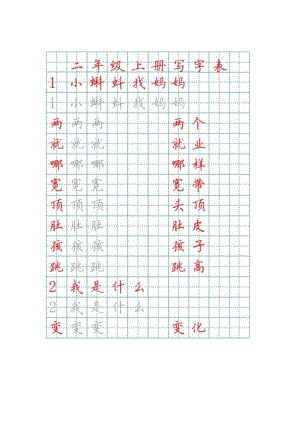 二年级上册写字表
1 小蝌蚪找妈妈
1 小蝌蚪找妈妈
两 两 两 两个
就 就 就 就业
哪 哪 哪 哪样
宽 宽 宽 宽带
顶 顶 顶 头顶
肚 肚 肚 肚皮
孩 孩 孩 孩子
跳 跳 跳 跳高
2 我是什么
2 我是什么
变 变 变 变化